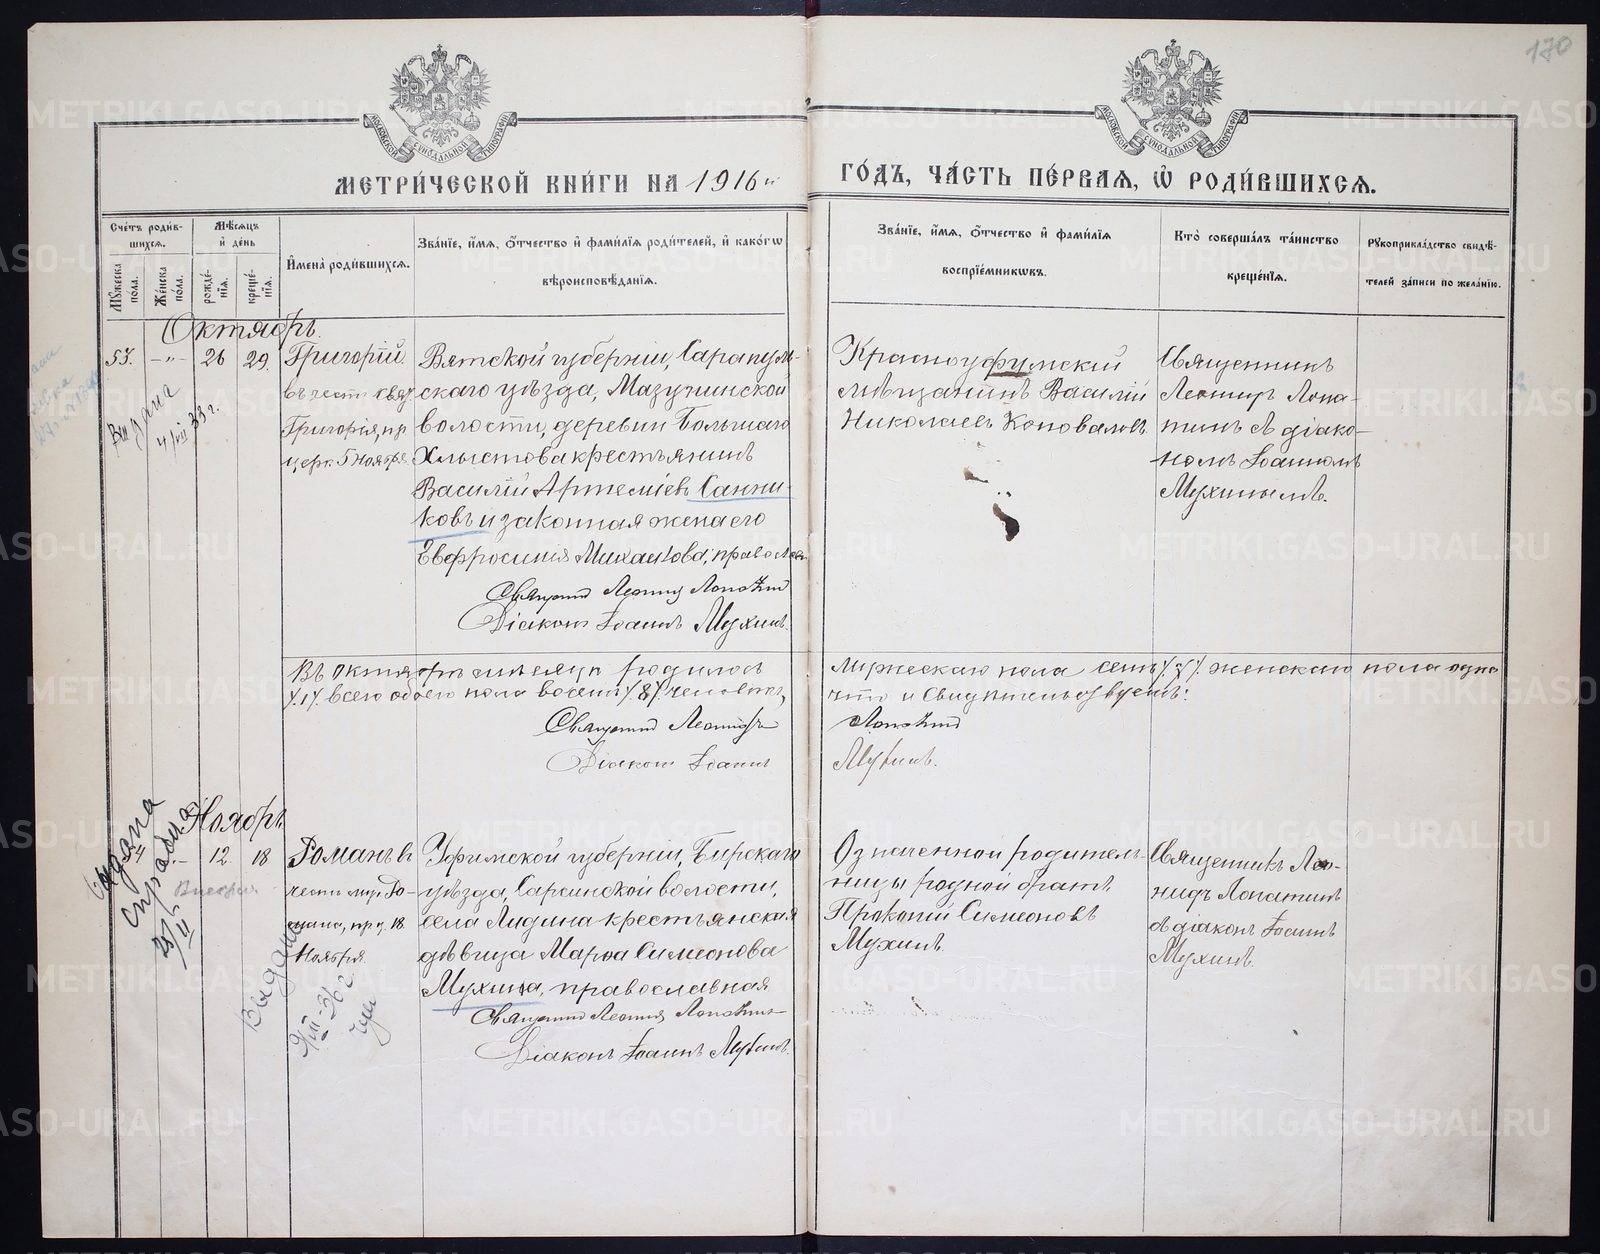 170
МОСКОВСКОЙ СѴНОДАЛЬНОЙ ТИПОГРАФІИ
МОСКОВСКОЙ СѴНОДАЛЬНОЙ ТИПОГРАФІИ
МЕТРИ́ЧЕСКОЙ КНИ́ГИ НА 1916й
ГО́ДЪ, ЧА́СТЬ ПЕ́РВАЯ, Ѡ҆ РОДИ́ВШИХСЯ.
Сче́тъ роди́в-
шихся.
Мꙋ́жеска по́ла.
Же́нска по́ла.
Мѣ́сяцъ
и҆ де́нь
рожде́-
нїя.
креще́-
нїя.
И҆мена̀ роди́вшихся.
Зва́нїе, и҆́мя, ѻ҆́тчество и҆ фами́лїя роди́телей, и҆ како́гѡ
вѣроисповѣ́данїя.
Зва́нїе, и҆́мя, ѻ҆́тчество и҆ фами́лїя
воспрїе́мникѡвъ.
Кто̀ соверша́лъ та́инство
креще́нїя.
Рꙋкоприкла́дство свидѣ́-
телей за́писи по жела́нїю.
Октябрь.
57. -"- 26 29.
Григорій
въ честь свят.
Григорія, пр.
церк. 5 ноября
Вятской губерніи, Сарапуль-
скаго уѣзда, Мазунинской
волости, деревни Большаго
Хлыстова крестьянинъ
Василій Артеміевъ Санни-
ковъ и законная жена его
Евфросинія Михаилова, правосл.
Священникъ Леонидъ Лопатинъ
Діаконъ Іоаннъ Мухинъ.
Красноуфимскій
мѣщанинъ Василій
Николаевъ Коноваловъ
Священникъ
Леонидъ Лопа-
тинъ съ діако-
номъ Іоанномъ
Мухинымъ.
Выдана
4/VII 33 г.
Въ октябрѣ мѣсяцѣ родилось мужескаго пола семь /7/ женскаго пола одна
/1/ всего обоего пола восемь /8/ человѣкъ, что и свидѣтельствуемъ:
Священникъ Леонидъ Лопатинъ
Діаконъ Іоаннъ Мухинъ.
Ноябрь
12 18
Романъ въ
честь муч. Ро-
мана, пр. ц. 18
Ноября.
Уфимской губерніи, Бирскаго
уѣзда, Сарсинской волости,
села Лидина крестьянская
дѣвица Марѳа Симеонова
Мухина, православная
Священникъ Леонидъ Лопатинъ
Діаконъ Іоаннъ Мухинъ.
Означенной родитель-
ницы родной братъ
Прокопій Симеоновъ
Мухинъ
Священникъ Лео-
нидъ Лопатинъ
съ діакон. Іоанномъ
Мухинъ.
Выдана
справка
Выдана
METRIKI.GASO-URAL.RU